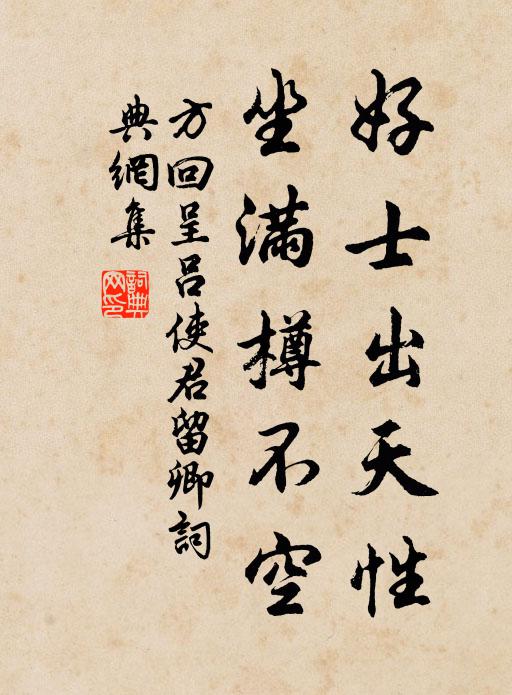 好士出天性
坐满樽不空
方回呈吕使君留卿詞
典網集
詞典
网印